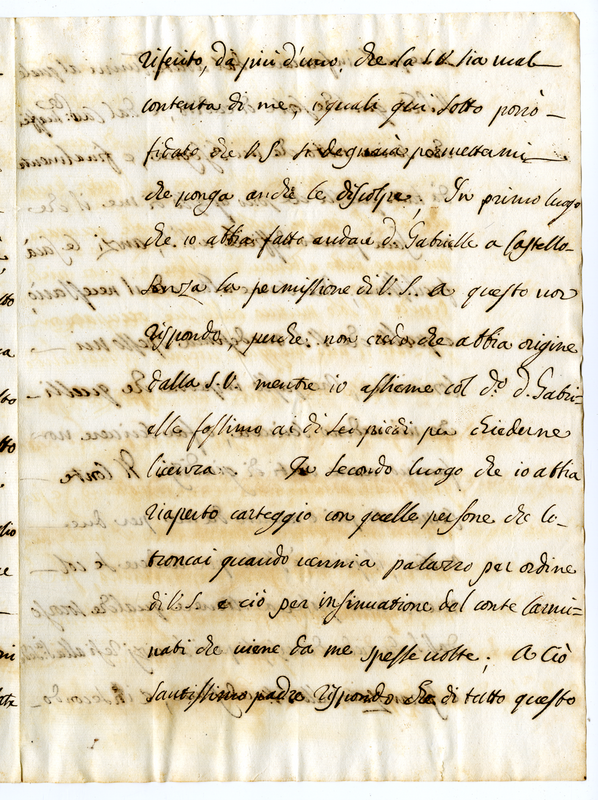 riferito, dà piu d'uno. che la S.V. sia mal
contenta di me, i quali qui sotto porrò
fidato che V.S. si degnarà permettami
che ponga anche le discolpe, In primo luogo
che. io abbia fatto andar d. Gabrielle a Castello-
senza la permissione di V.S.. a questo non
rispondo, perche. non credo che abbia origine
dalla S.V. mentre io assieme col d.º d. Gabri-
elle fossimo ai di lei piedi per chiederne
licenza. In secondo luogo che io abbia
riaperto carteggio con quelle persone che lo-
troncai quando venni a palazzo per ordine
di V.S. e ciò per insinuatione del conte Carmi-
nati che viene da me spesse volte; A Ciò
santissimo padre rispondo che di tutto questo